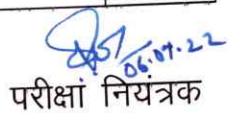 06.07.22
परीक्षां नियंत्रक